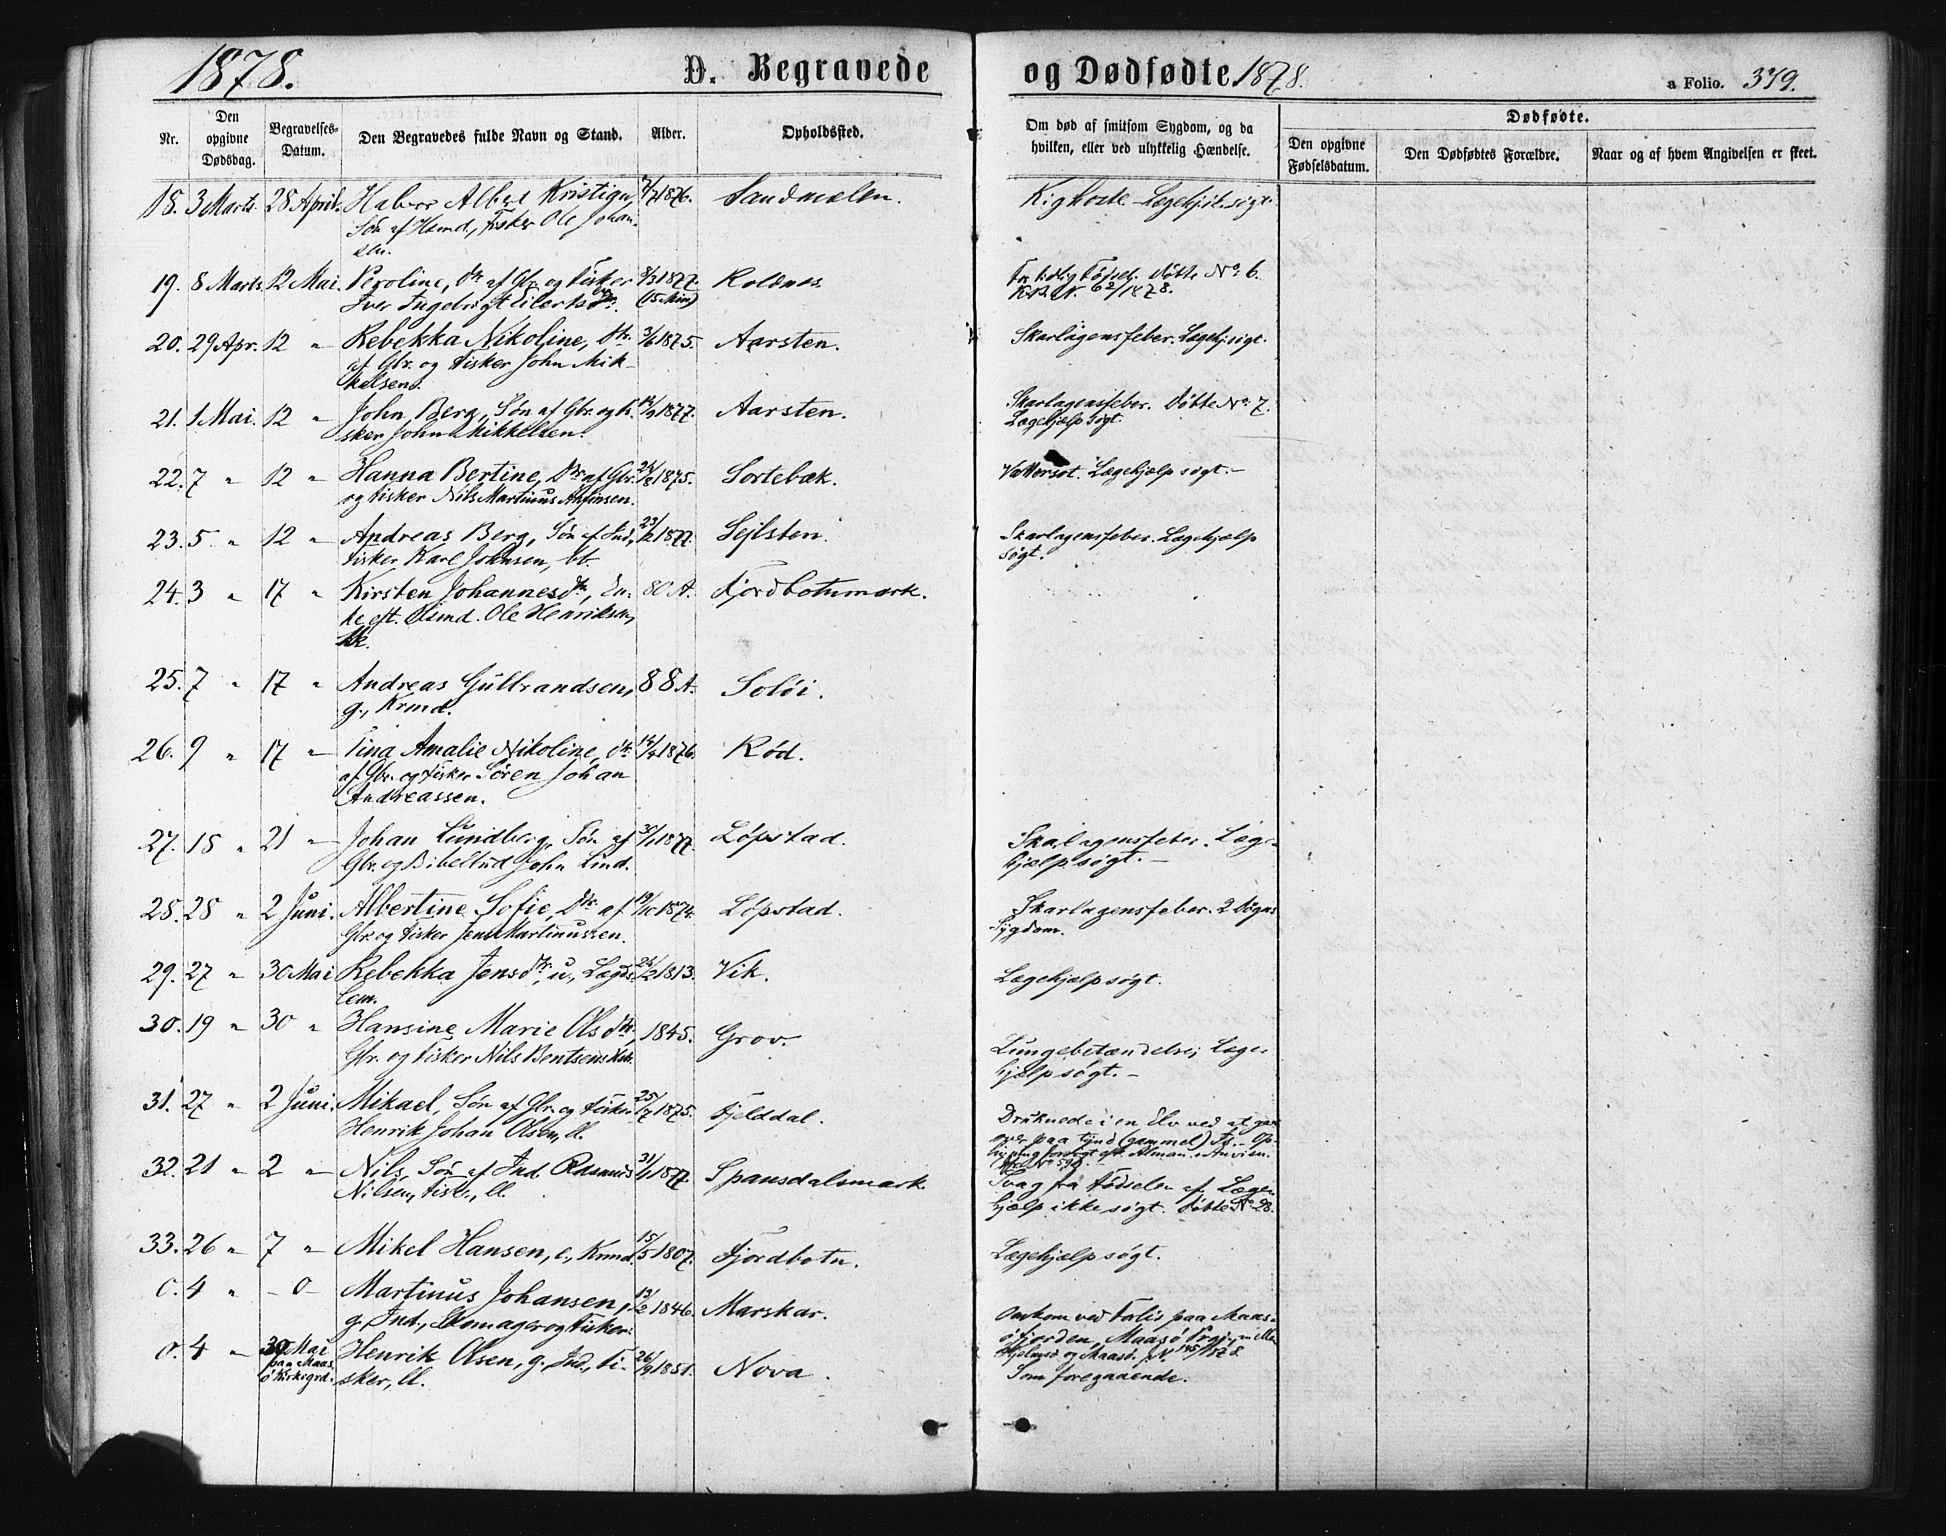 1878. D. Begravede og Dødfødte 1878. a Folio. 379.
Nr. Den opgivne Dødsdag. Begravelses-Datum. Den Begravedes fulde Navn og Stand. Alder. Opholdssted. Om død af smitsom Sygdom, og da hvilken, eller ved ulykkelig Hændelse. Dødfødte. Den opgivne Fødselsdatum. Den Dødfødtes Forældre. Naar og af hvem Angivelsen er skeet.
18. 3 Marts. 28 April. Halvor Albert Kristian, 7/7 1876. Sandmælen. Kighoste - Lægehj. søgt.
Søn af Hsmd., Fisker Ole Johan-
sen.
19. 8 Marts. 12 Mai. Peroline, Dtr. af Gbr. og Fisker 8/3 1877. Roldnes. For tidlig Fødsel. Døbte No. 6.
Iver Ingebrigt Eilertsen. (15 Min) K.B. N. 62/1878.
20. 29 Apr. 12 " Rebekka Nikoline, Dtr. 3/6 1875. Aarsten. Skarlagensfeber. Lægehj. søgt.
af Gbr. og Fisker John Mik-
kelsen.
21. 1 Mai. 12 " John Berg, Søn af Gbr. og Fi- 14/9 1877. Aarsten. Skarlagensfeber. Døbte No. 7.
sker John Mikkelsen. Lægehjælp søgt.
22. 7 " 12 " Hanna Bertine, Dtr. af Gbr. 24/8 1875. Sortebæk. Vattersot. Lægehjælp søgt. -
og Fisker Nils Martinus Anfinsen.
23. 5 " 12 " Andreas Berg, Søn af Ind., 23/12 1877. Sejlsten. Skarlagensfeber. Lægehjælp
Fisker Karl Johnsen, søgt.
24. 3 " 17 " Kirsten Johannesdtr, En- 80 A. Fjordbotnmark.
ke eft. Hsmd. Ole Henriksen,
25. 7 " 17 " Andreas Gulbrandsen, 88 A. Soløi.
g., Krmd.
26. 9 " 17 " Tina Amalie Nikoline, Dtr. 14/4 1876. Rød.
af Gbr. og Fisker Søren Johan
Andreassen.
27. 18 " 21 " Johan Lundberg, Søn af 30/11 1877. Løpstad. Skalagensfeber. Læge-
Gbr. og Bibelbud John Lind. hjælp søgt. -
28. 28 " 2 Juni. Albertine Sofie, Dtr. af 19/10 1874. Løpstad. Skarlagensfeber. 2 Døgns
Gbr. og Fisker Jens Martinussen. Sygdom.
29. 27 " 30 Mai Rebekka Jensdtr., u., Lægds- 24/12 1813. Vik. Lægehjælp søgt.
lem.
30. 19 " 30 " Hansine Marie Olsdtr, 1845. Grov. Lungebetændelse; Læge-
Gbr. og Fisker Nils Bentsens hjælp søgt. -
31. 27 " 2 Juni. Mikael, Søn af Gbr. og Fisker 25/7 1875. Fjelddal. Druknede i en Elv ved at gaa
Henrik Johan Olsen, ll. over paa tynd (gammel) Is.
32. 21 " 2 " Nils, Søn af Ind. Rasmus 31/1 1877. Spansdalsmark. Svag fra Fødselen af. Læge-
Nilsen, Fisk., ll. hjælp ikke søgt. Døbte No. 28.
33. 26 " 7 " Mikel Hansen, e., Krmd. 15/5 1807. Fjordbotn. Lægehjælp søgt.
0. 4 " - 0 - Martinus Johansen, 13/12 1846. Marskar. Omkom ved Forlis paa Maas-
g., Ind., Skomager og Fisker. øfjorden, Maasø Prgj., mellem
Hjelmsø og Maasø. N. 145/1878.
0. 4 " 30 Mai Henrik Olsen, g., Ind., Fi- 26/9 1851. Nova. Som foregaaende.
paa Maas- sker, ll.
ø Kirkegrd.